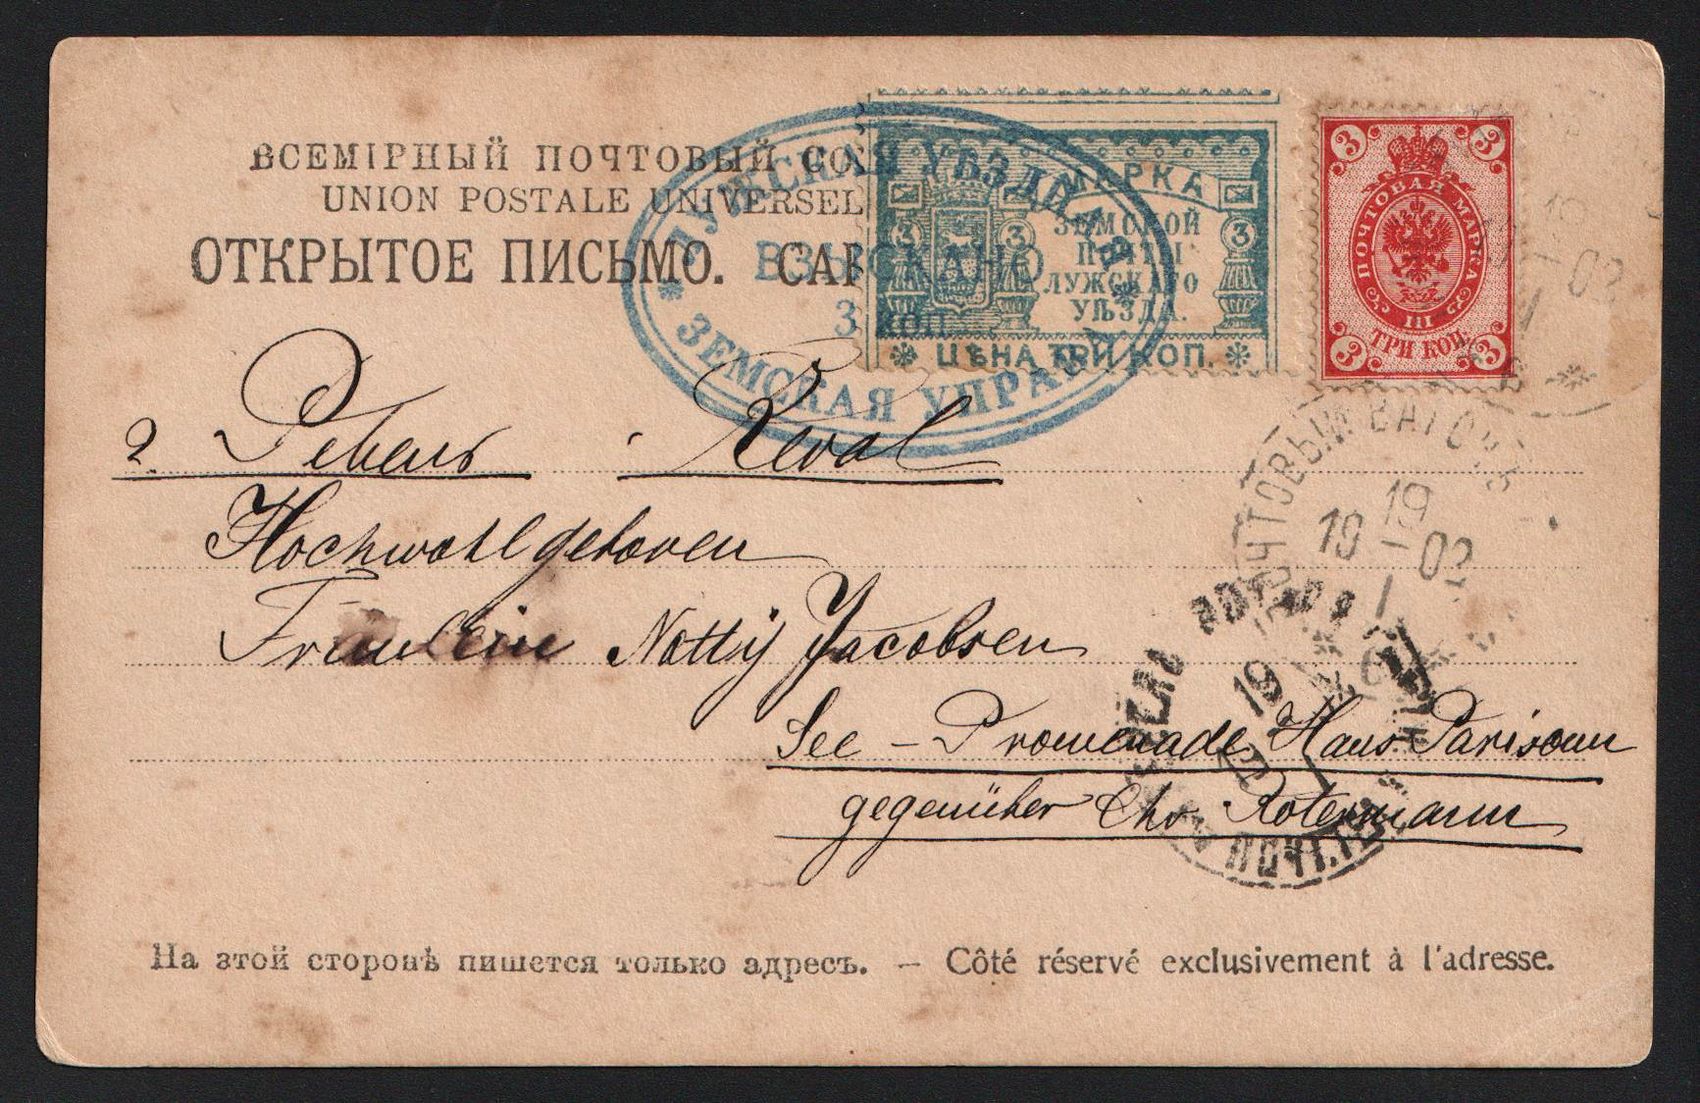 ВСЕМІРНЫЙ ПОЧТОВЫЙ СОЮ
UNION POSTALE UNIVERSEL
ОТКРЫТОЕ ПИСЬМО. CAR
ЛУЖСКАЯ УѢЗДНАЯ
ВЗЫСКАНО
3 коп.
ЗЕМСКАЯ УПРАВА
МАРКА
ЗЕМСКОЙ
ПОЧТЫ
ЛУЖСКАГО
УѢЗДА.
3 3 3
ЦѢНА ТРИ КОП.
3 3
ПОЧТОВАЯ МАРКА
III
ТРИ КОП.
3 3
г. Ревель Reval
Hochwohlgeboren
Fräulein Notty Jacobsen
See - Promenade Haus Parisoun
gegenüber Chr Rotermann
ПОЧТОВЫЙ ВАГОНЪ
19
19 - 02
I
19
I
На этой сторонѣ пишется только адресъ. — Côté réservé exclusivement à l'adresse.